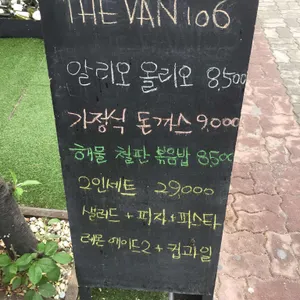 THE VAN 106
알리오 올리오 8,500
가정식 돈까스 9,000
해물 철판 볶음밥 8,500
2인세트 29,000
샐러드 + 피자 + 파스타
레몬에이드2 + 컵과일